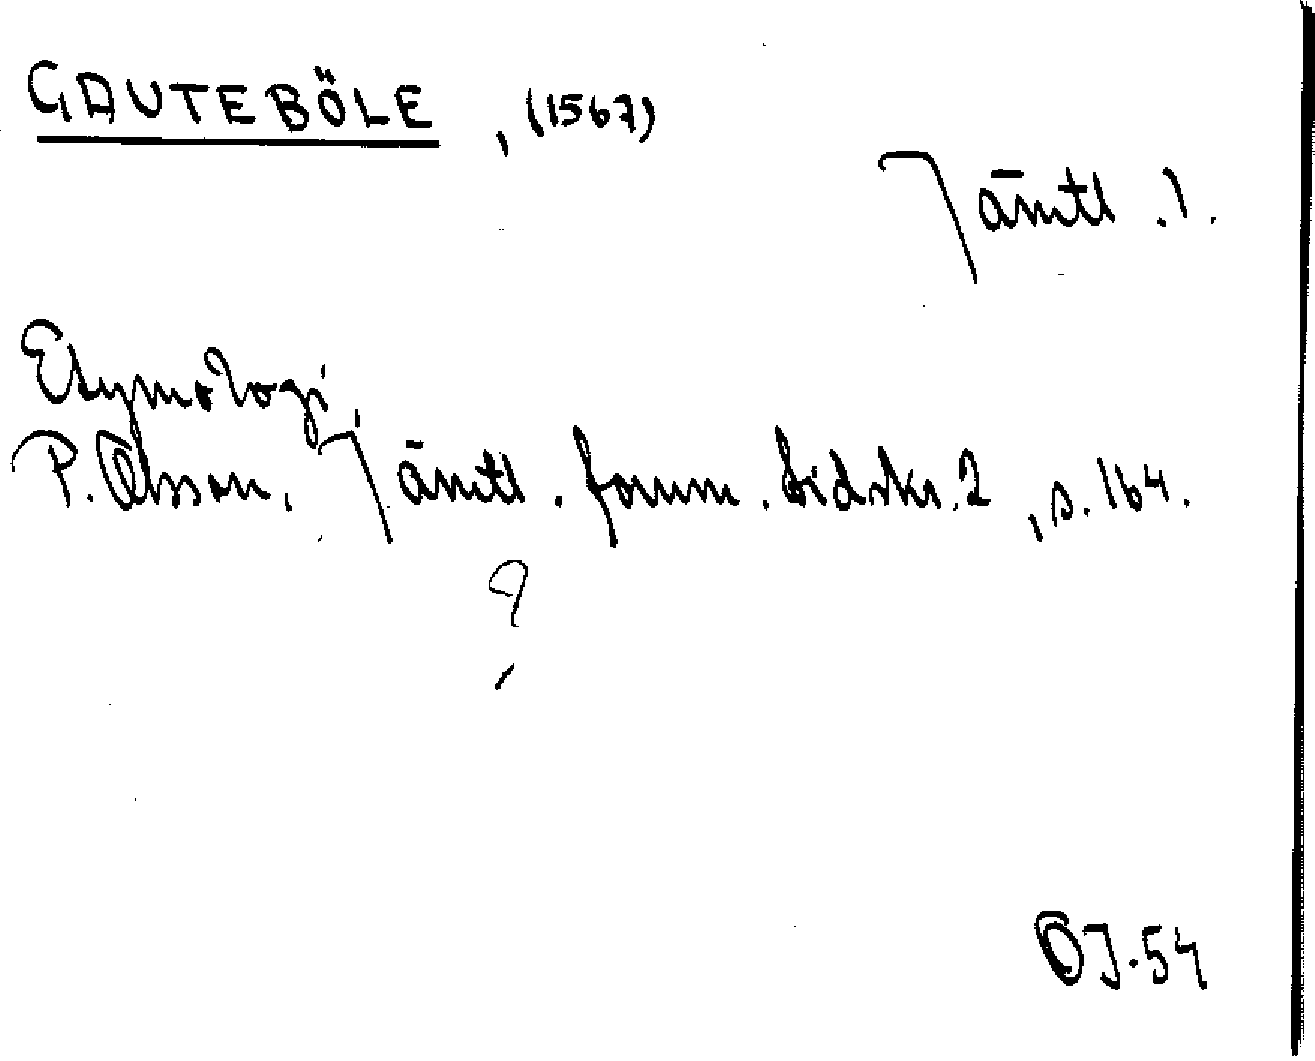 GAUTEBÖLE, (1567)
Jämtl. l.
Etymologi
P. Olsson. Jämtl. fornm. tidskr. 2, s. 164.
?
OJ. 54